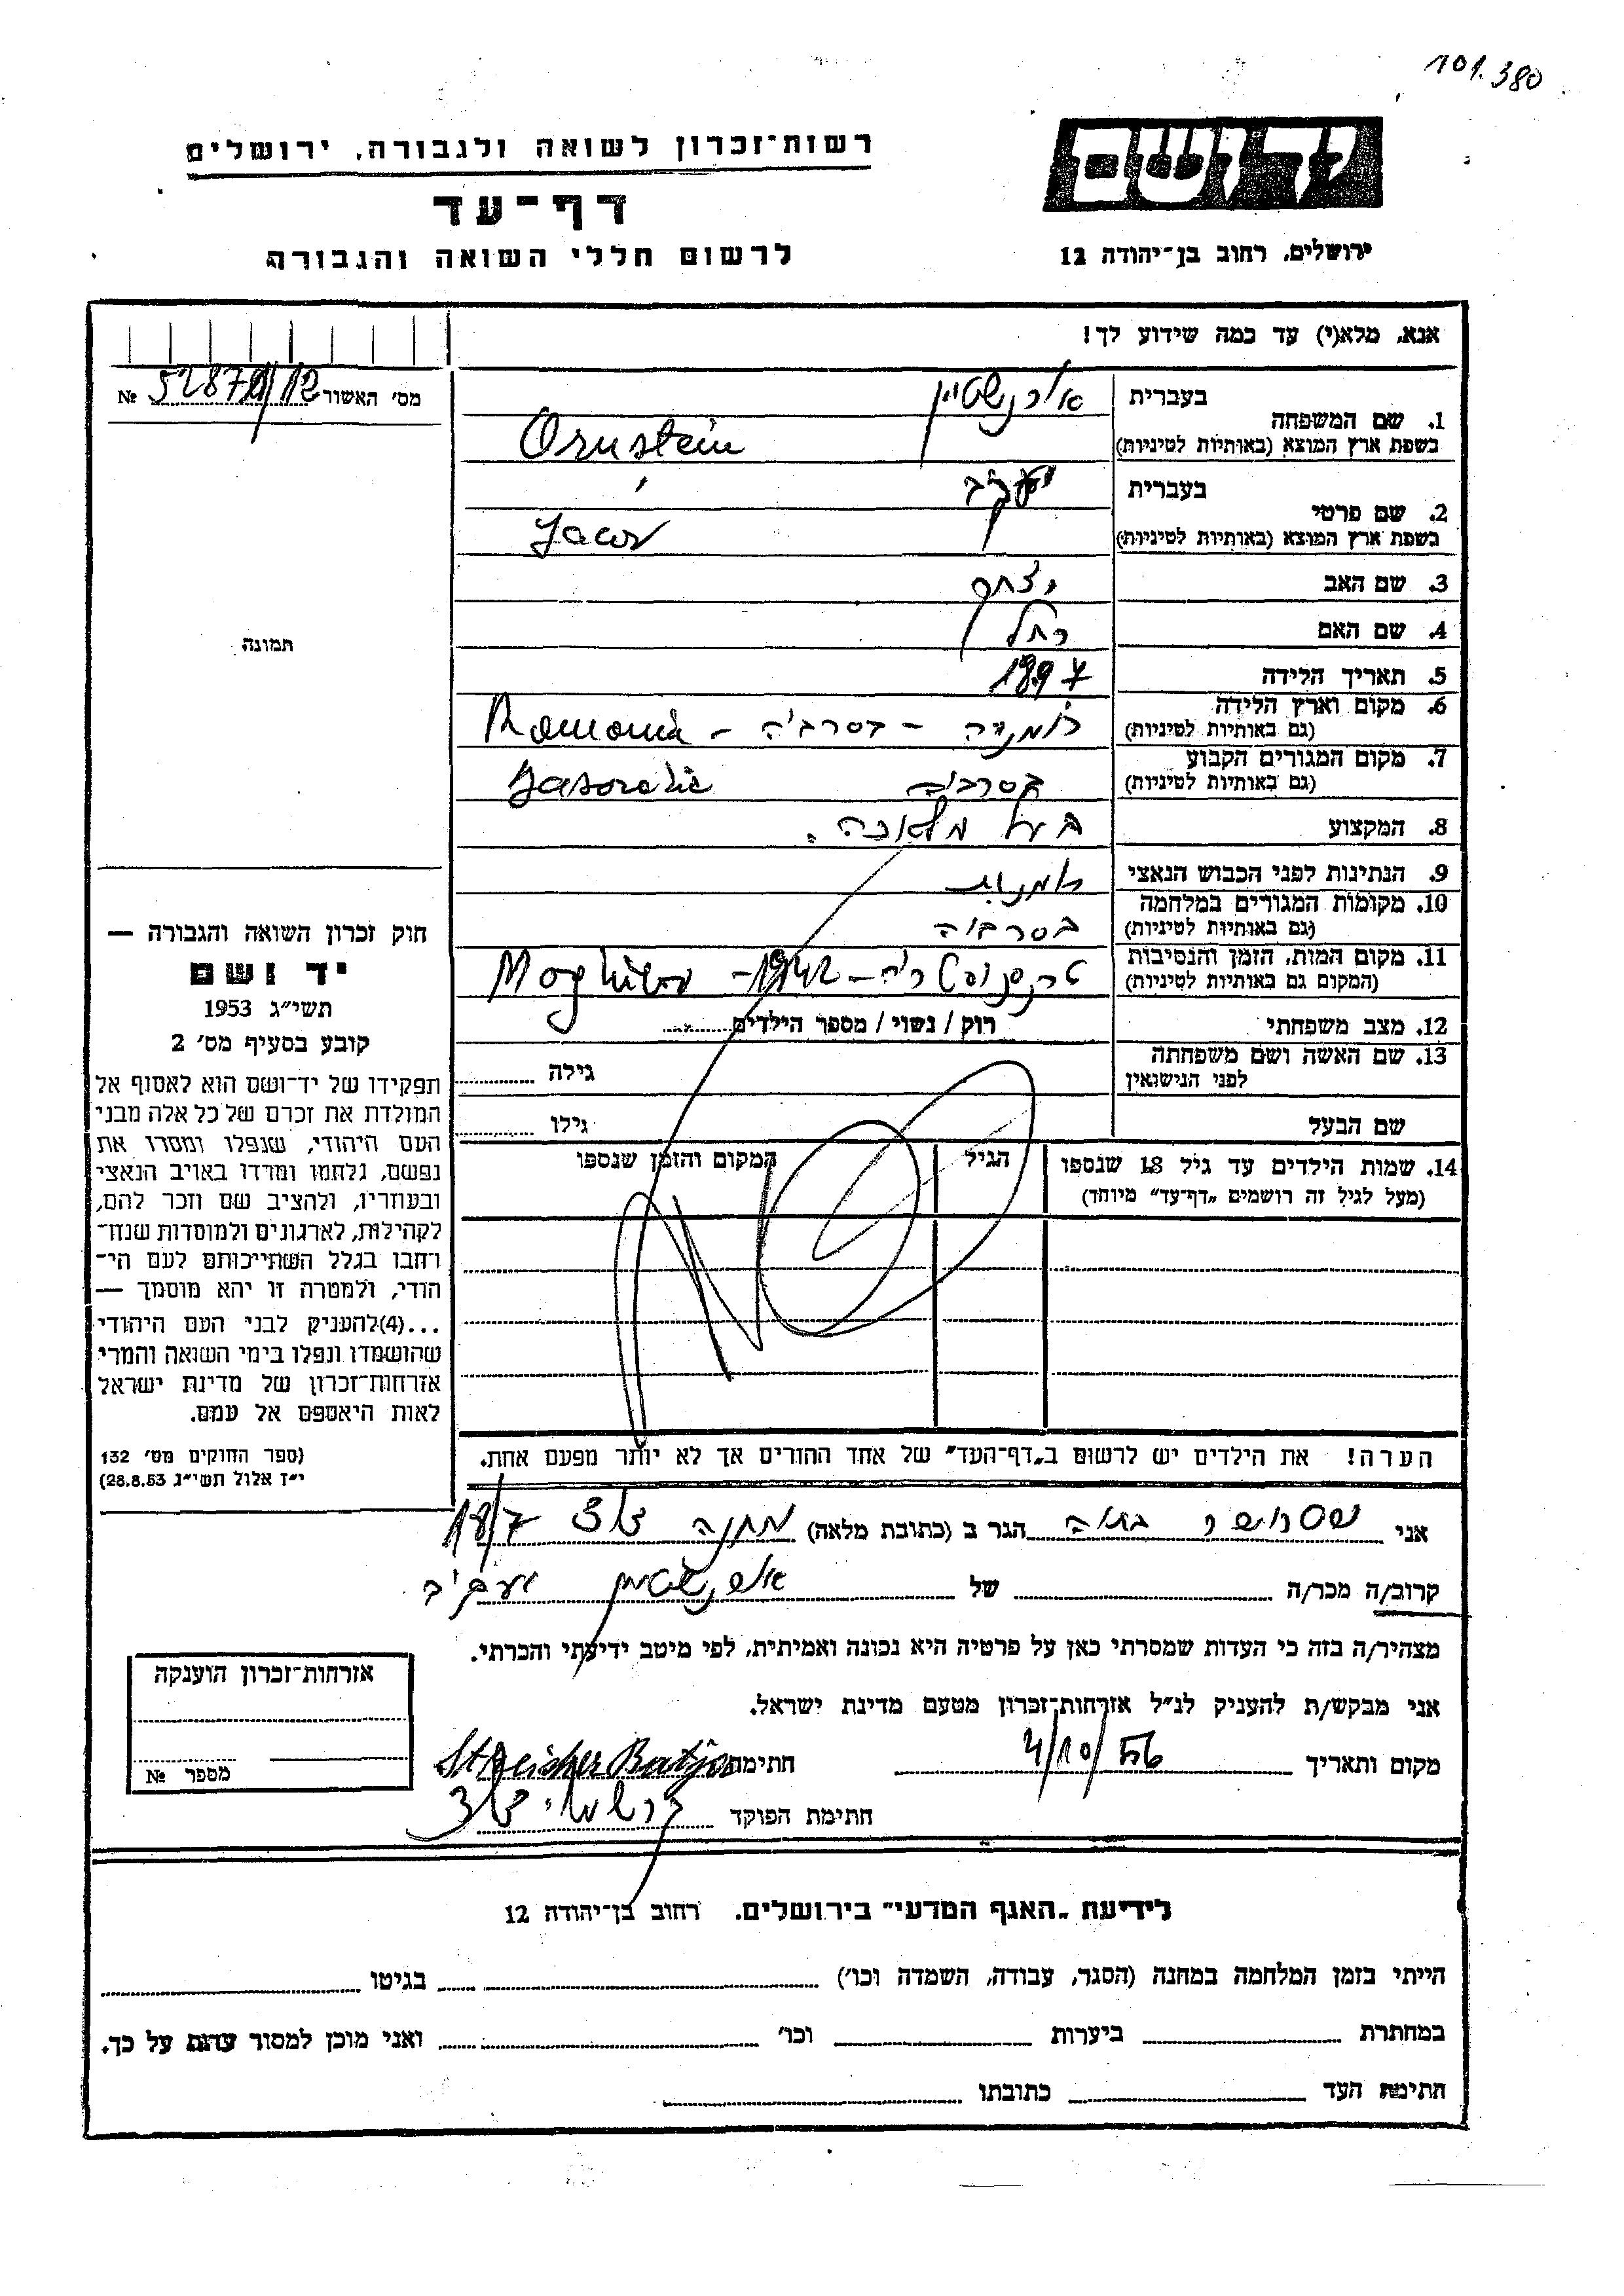 101.380
יד ושם
רשות־זכרון לשואה ולגבורה, ירושלים
דף־עד
לרשום חללי השואה והגבורה
ירושלים, רחוב בן־יהודה 12
אנא, מלא(י) עד כמה שידוע לך!
מס׳ האשור № 52879/12
תמונה
בעברית אורנשטיין
1. שם המשפחה
בשפת ארץ המוצא (באותיות לטיניות) Ornstein
בעברית יעקב
2. שם פרטי
בשפת ארץ המוצא (באותיות לטיניות) Jacov
3. שם האב יצחק
4. שם האם רחל
5. תאריך הלידה 1897
6. מקום וארץ הלידה
(גם באותיות לטיניות) רומניה – בסרביה – Romania
7. מקום המגורים הקבוע
(גם באותיות לטיניות) בסרביה
8. המקצוע בעל מלאכה.
9. הנתינות לפני הכבוש הנאצי
10. מקומות המגורים במלחמה
(גם באותיות לטיניות) בסרביה
11. מקום המות, הזמן והנסיבות
(המקום גם באותיות לטיניות) טרנסניסטריה – 1942 –
12. מצב משפחתי רוק / נשוי / מספר הילדים
13. שם האשה ושם משפחתה
לפני הנישואין גילה
שם הבעל גילו
14. שמות הילדים עד גיל 18 שנספו הגיל המקום והזמן שנספו
(מעל לגיל זה רושמים „דף־עד״ מיוחד)
הערה! את הילדים יש לרשום ב„דף־העד״ של אחד ההורים אך לא יותר מפעם אחת.
חוק זכרון השואה והגבורה —
יד ושם
תשי״ג 1953
קובע בסעיף מס׳ 2
תפקידו של יד־ושם הוא לאסוף אל
המולדת את זכרם של כל אלה מבני
העם היהודי, שנפלו ומסרו את
נפשם, נלחמו ומרדו באויב הנאצי
ובעוזריו, ולהציב שם וזכר להם,
לקהילות, לארגונים ולמוסדות שנח־
רבו בגלל השתייכותם לעם הי־
הודי, ולמטרה זו יהא מוסמך —
...(4)להעניק לבני העם היהודי
שהושמדו ונפלו בימי השואה והמרי
אזרחות־זכרון של מדינת ישראל
לאות היאספם אל עמם.
(ספר החוקים מס׳ 132
י״ז אלול תשי״ג 28.8.53)
אני בתיה הגר ב (כתובת מלאה) 18/7
קרוב/ה מכר/ה של אורנשטיין יעקב
מצהיר/ה בזה כי העדות שמסרתי כאן על פרטיה היא נכונה ואמיתית, לפי מיטב ידיעתי והכרתי.
אני מבקש/ת להעניק לנ״ל אזרחות־זכרון מטעם מדינת ישראל.
מקום ותאריך 4/10/56 חתימת
חתימת הפוקד
אזרחות־זכרון הוענקה
מספר №
לידיעת „האגף המדעי״ בירושלים. רחוב בן־יהודה 12
הייתי בזמן המלחמה במחנה (הסגר, עבודה, השמדה וכו׳) בגיטו
במחתרת ביערות וכו׳ ואני מוכן למסור עדות על כך.
חתימת העד כתובתו